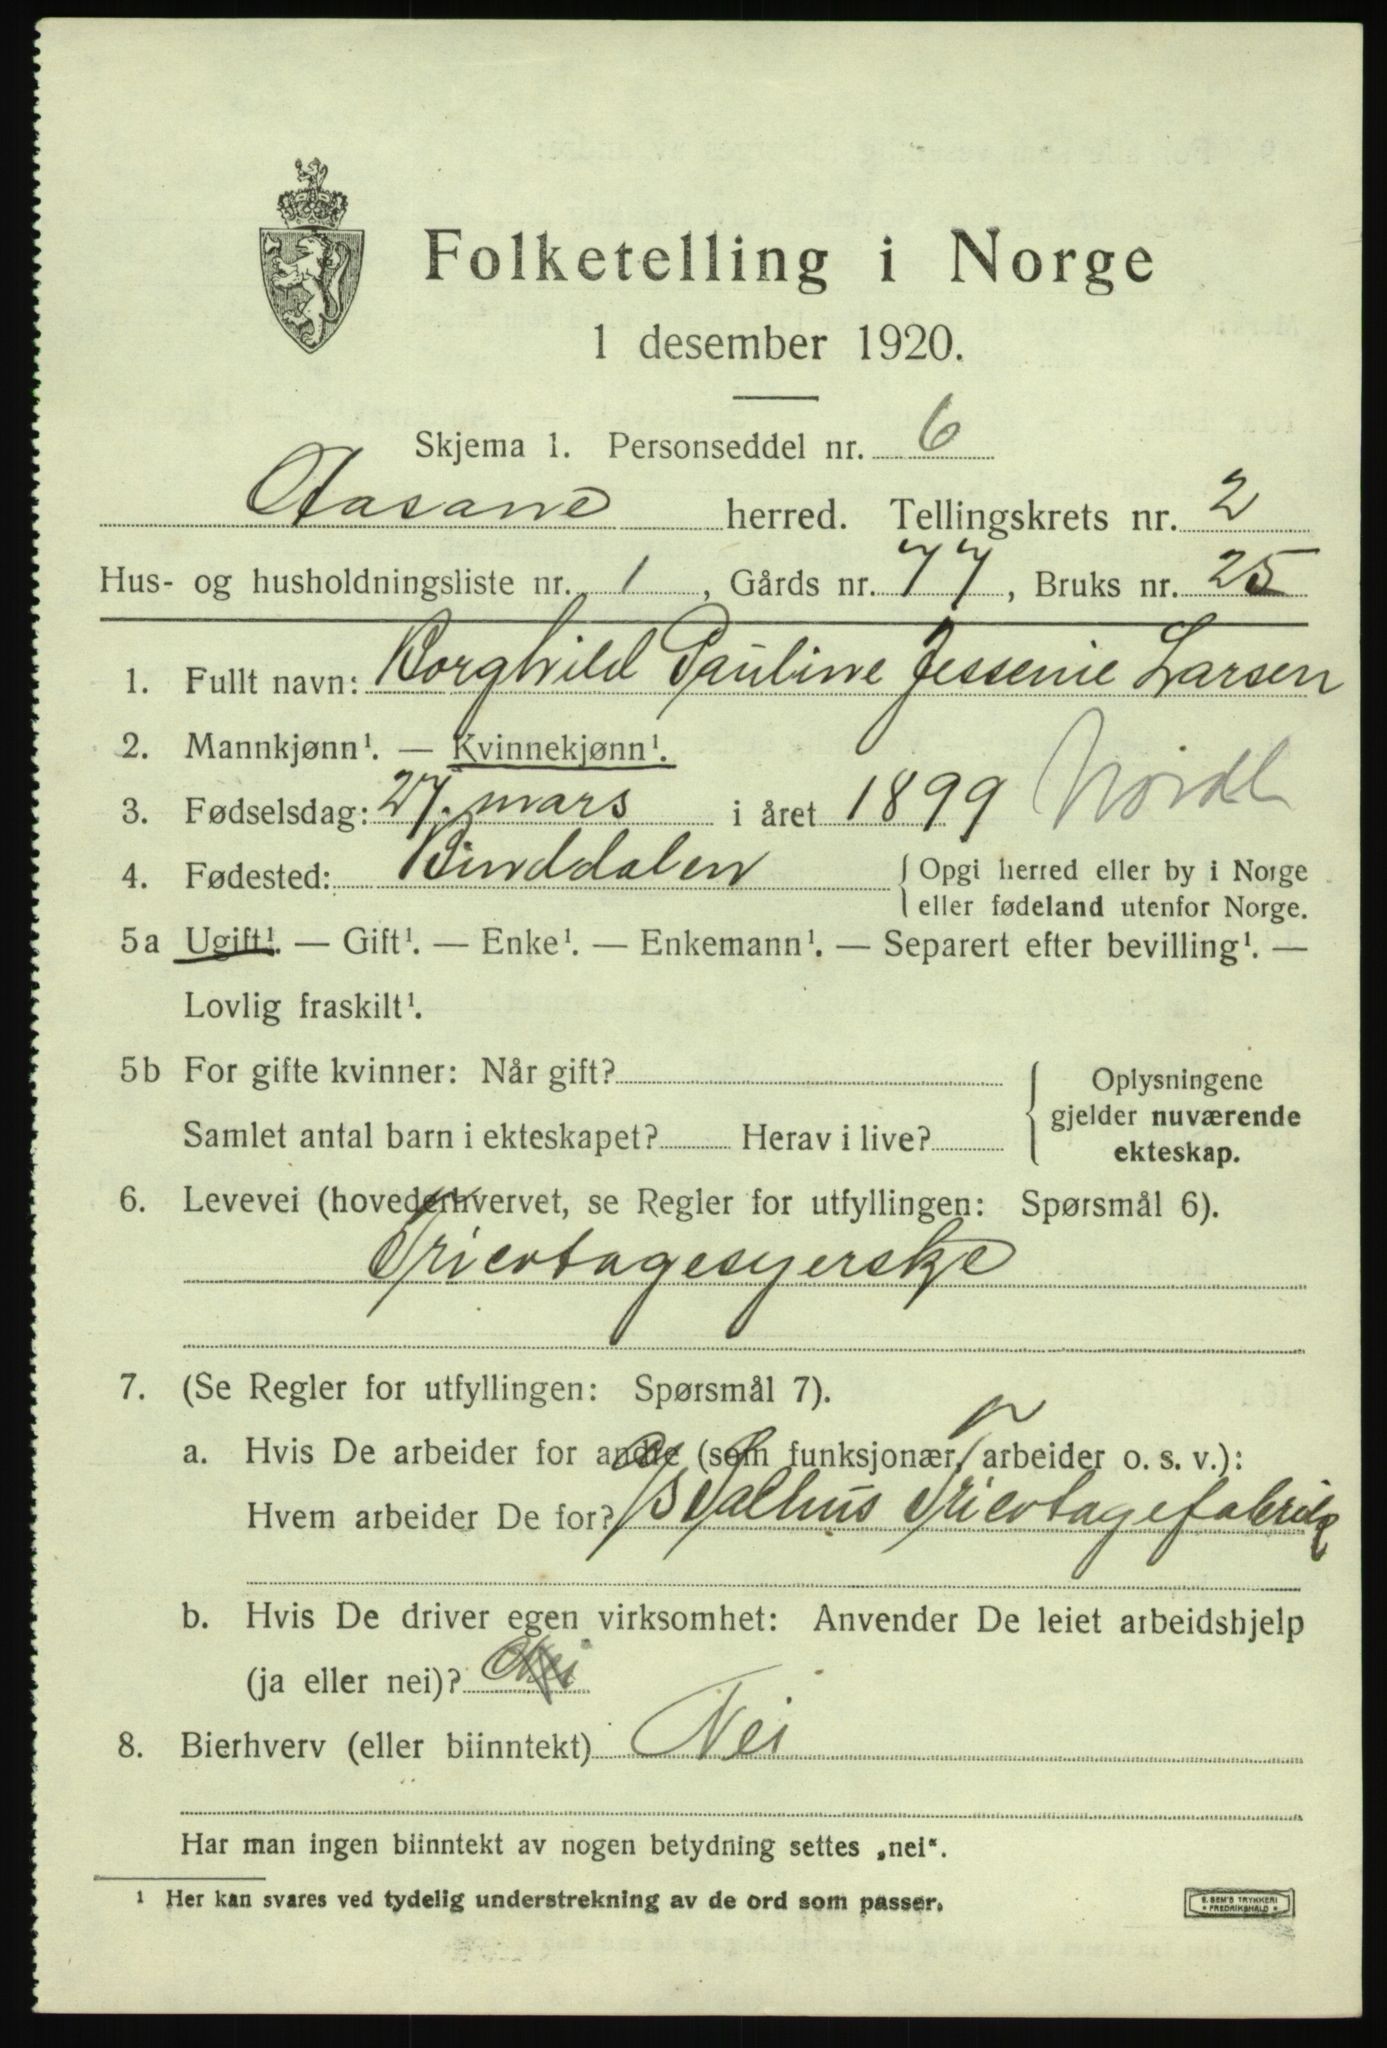 Folketelling i Norge
1 desember 1920.
Skjema 1. Personseddel nr. 6
Aasane herred. Tellingskrets nr. 2
Hus- og husholdningsliste nr. 1, Gårds nr. 77, Bruks nr. 25
1. Fullt navn: Borghild Pauline Jessenie Larsen
2. Mannkjønn¹. — Kvinnekjønn¹.
3. Fødselsdag: 27. mars i året 1899 Nordl
4. Fødested: Binddalen { Opgi herred eller by i Norge
eller fødeland utenfor Norge.
5a Ugift¹. — Gift¹. — Enke¹. — Enkemann¹. — Separert efter bevilling¹. —
Lovlig fraskilt¹.
5b For gifte kvinner: Når gift?
Samlet antal barn i ekteskapet? Herav i live?
Oplysningene
gjelder nuværende
ekteskap.
6. Levevei (hovederhvervet, se Regler for utfyllingen: Spørsmål 6).
Tricotagesyerske
7. (Se Regler for utfyllingen: Spørsmål 7).
a. Hvis De arbeider for andre (som funksjonær, arbeider o. s. v.):
Hvem arbeider De for? A/S Salhus Tricotagefabrik
b. Hvis De driver egen virksomhet: Anvender De leiet arbeidshjelp
(ja eller nei)? Nei
8. Bierhverv (eller biinntekt) Nei
Har man ingen biinntekt av nogen betydning settes „nei“.
¹ Her kan svares ved tydelig understrekning av de ord som passer.
E. SEM'S TRYKKERI
* FREDRIKSHALD *